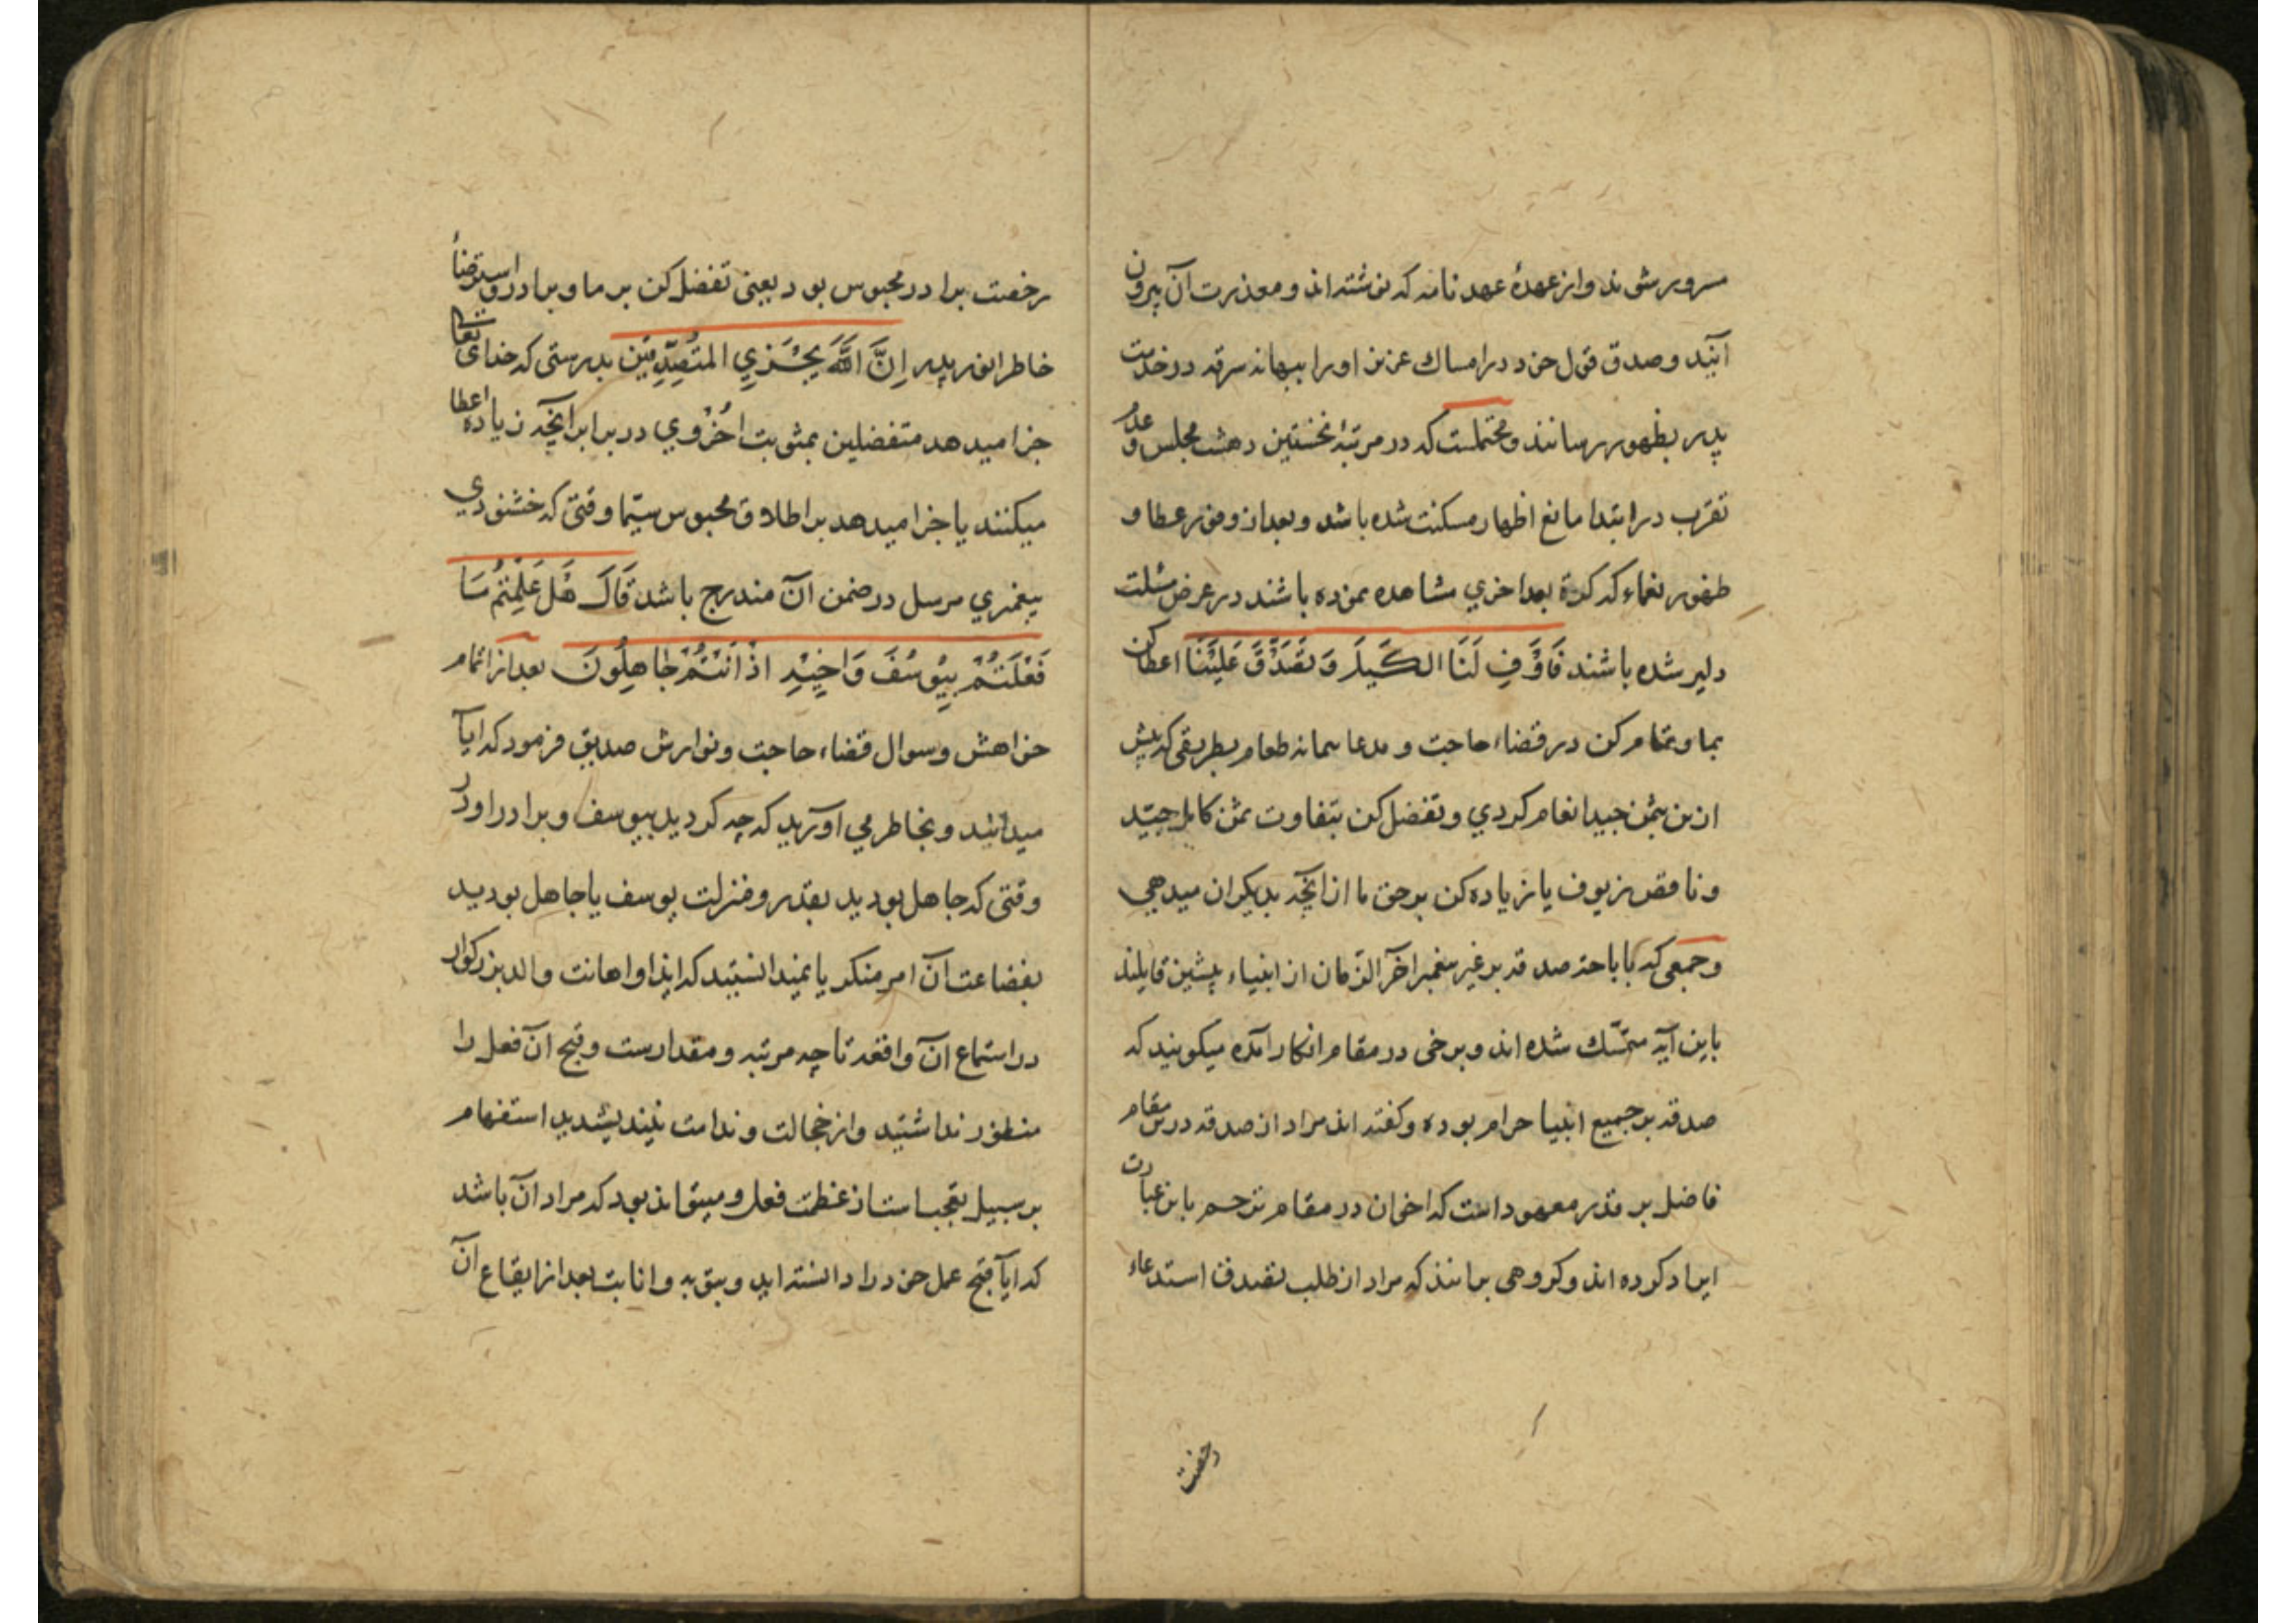 مسرور شوند و از عهدهٔ عهد نامه که نوشته اند و معذرت آن بیرون
آیند و صدق قول خود در امساک عزیز او را ببهانه سرقه در خدمت
پدر بظهور رسانند و محتملست که در مرتبهٔ نخستین دهشت مجلس و عدم
تقرب در ابتدا مانع اظهار مسکنت شده باشد و بعد از وفور عطا و
ظهور نعماء که کرة بعد اخری مشاهده نموده باشند در عرض مسئلت
دلیر شده باشند فَاَوْفِ لَنَا الکَیلَ وَ تَصَدَّقْ عَلَیْنَا اعطا کن
بما و تمام کن در قضاء حاجت و مدعا سمانه طعام بطریقی که پیش
ازین بثمن جید انعام کردی و تفضل کن بتفاوت ثمن کامل جیّد
و ناقص زیوف یا زیاده کن بر حق ما از آنچه بدیکران میدهی
و جمعی که باباحت صدقه بر غیر پیغمبر آخر الزمان از انبیاء پیشین قایلند
باین آیه متمسّک شده اند و برخی در مقام انکار آمده میکویند که
صدقه بر جمیع انبیا حرام بوده و کفته اند مراد از صدقه درین مقام
فاضل بر قدر معهود است که اخوان در مقام ترحم باین عبارت
ایراد کرده اند و کروهی برانند که مراد از طلب تصدق استدعاء
رخصت
رخصت برادر محبوس بود یعنی تفضل کن بر ما و برادر و استرضاء
خاطر انور پدر اِنَّ اللّٰهَ یَجْزِي المُتَصَدِّقِین بدرستی که خدای تعالی
جزا میدهد متفضلین بمثوبت اُخْرَوي در برابر آنچه زیاده اعطا
میکنند یا جزا میدهد بر اطلاق محبوس سیّما وقتی که خشنودي
پیغمبري مرسل در ضمن آن مندرج باشد قَالَ هَلْ عَلِمْتُمْ مَا
فَعَلْتُمْ بِیُوسُفَ وَاَخِیْهِ اِذْ اَنْتُمْ جَاهِلُونَ بعد از اتمام
خواهش و سوال قضاء حاجت و نوازش صدیق فرمود که ایا
میدانید و بخاطر می آورید که چه کردید بیوسف و برادر او در
وقتی که جاهل بودید بقدر و منزلت یوسف یا جاهل بودید
بفضاعت آن امر منکر یا نمیدانستید که ایذا و اهانت والد بزرکوار
در استماع آن واقعه تا چه مرتبه و مقدارست و قبح آن فعل را
منظور نداشتید و از خجالت و ندامت نیندیشیدید استفهام
بر سبیل تعجب است از عظمت فعل و میتواند بود که مراد آن باشد
که ایا قبح عمل خود را دانسته اید و بتوبه و انابت بعد از ایقاع آن